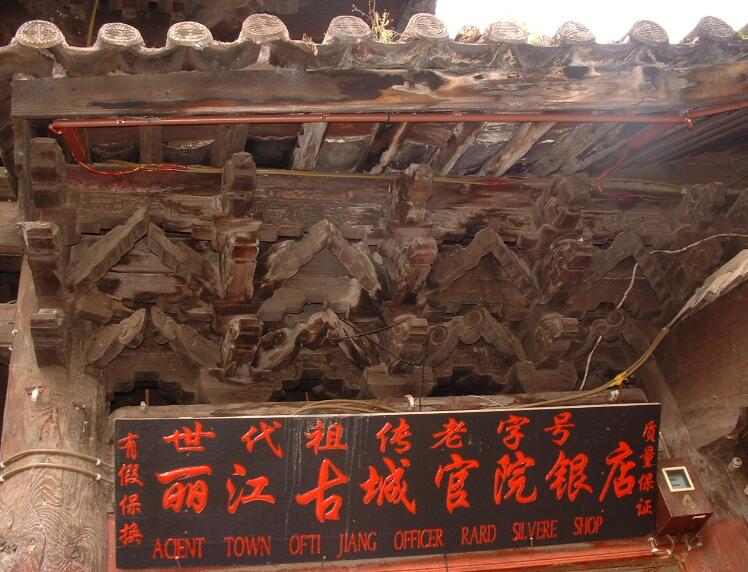 世代祖传老字号
有假保换
丽江古城官院银店
质量保证
ACIENT TOWN OFTI JIANG OFFICER RARD SILVERE SHOP